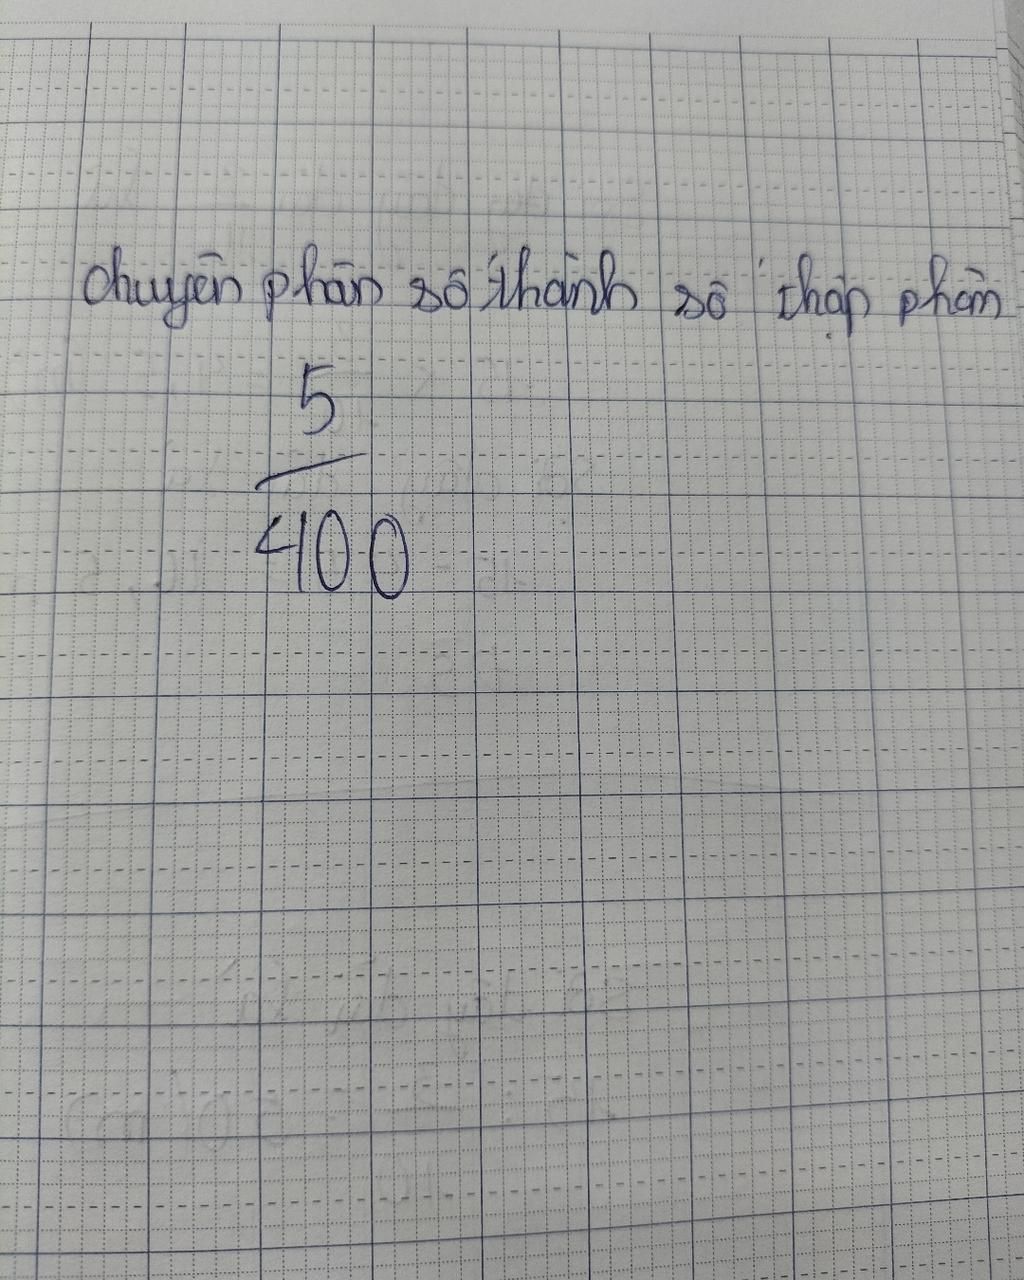 chuyển phân số thành số thập phân
5
400